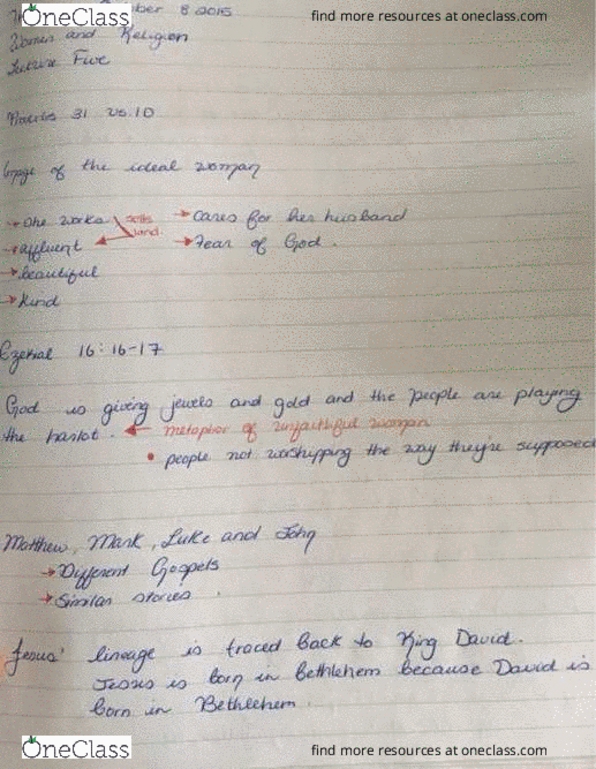 OneClass
find more resources at oneclass.com
8 2015
Women and Religion
Lecture Five
Proverbs 31 vs.10
Image of the ideal woman
→ She works sells land. → cares for her husband
→ affluent → Fear of God.
→ beautiful
→ Kind
Ezekial 16:16-17
God is giving jewels and gold and the people are playing
the harlot. ← metaphor of unfaithful woman
• people not worshipping the way they're supposed
Matthew, Mark, Luke and John
→ Different Gospels
→ Similar stories.
Jesus' lineage is traced back to King David.
Jesus is born in Bethlehem because David is
born in Bethlehem.
OneClass
find more resources at oneclass.com